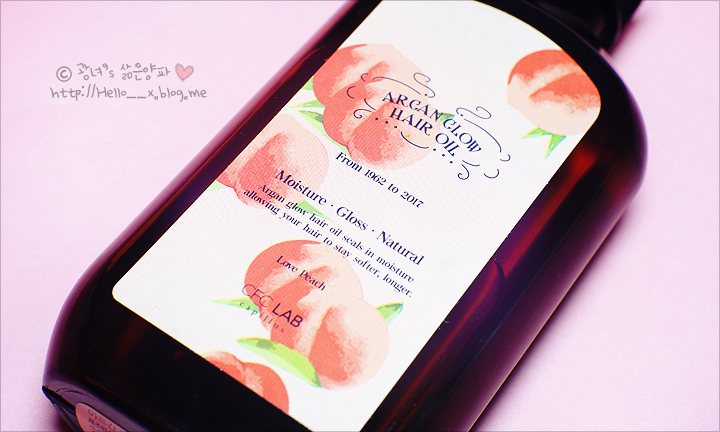 © 광녀's 삶은양파
http://Hello__x.blog.me
ARGAN GLOW
HAIR OIL
From 1962 to 2017
Moisture · Gloss · Natural
Argan glow hair oil seals in moisture
allowing your hair to stay softer, longer.
Love Peach
CFC LAB
capillus